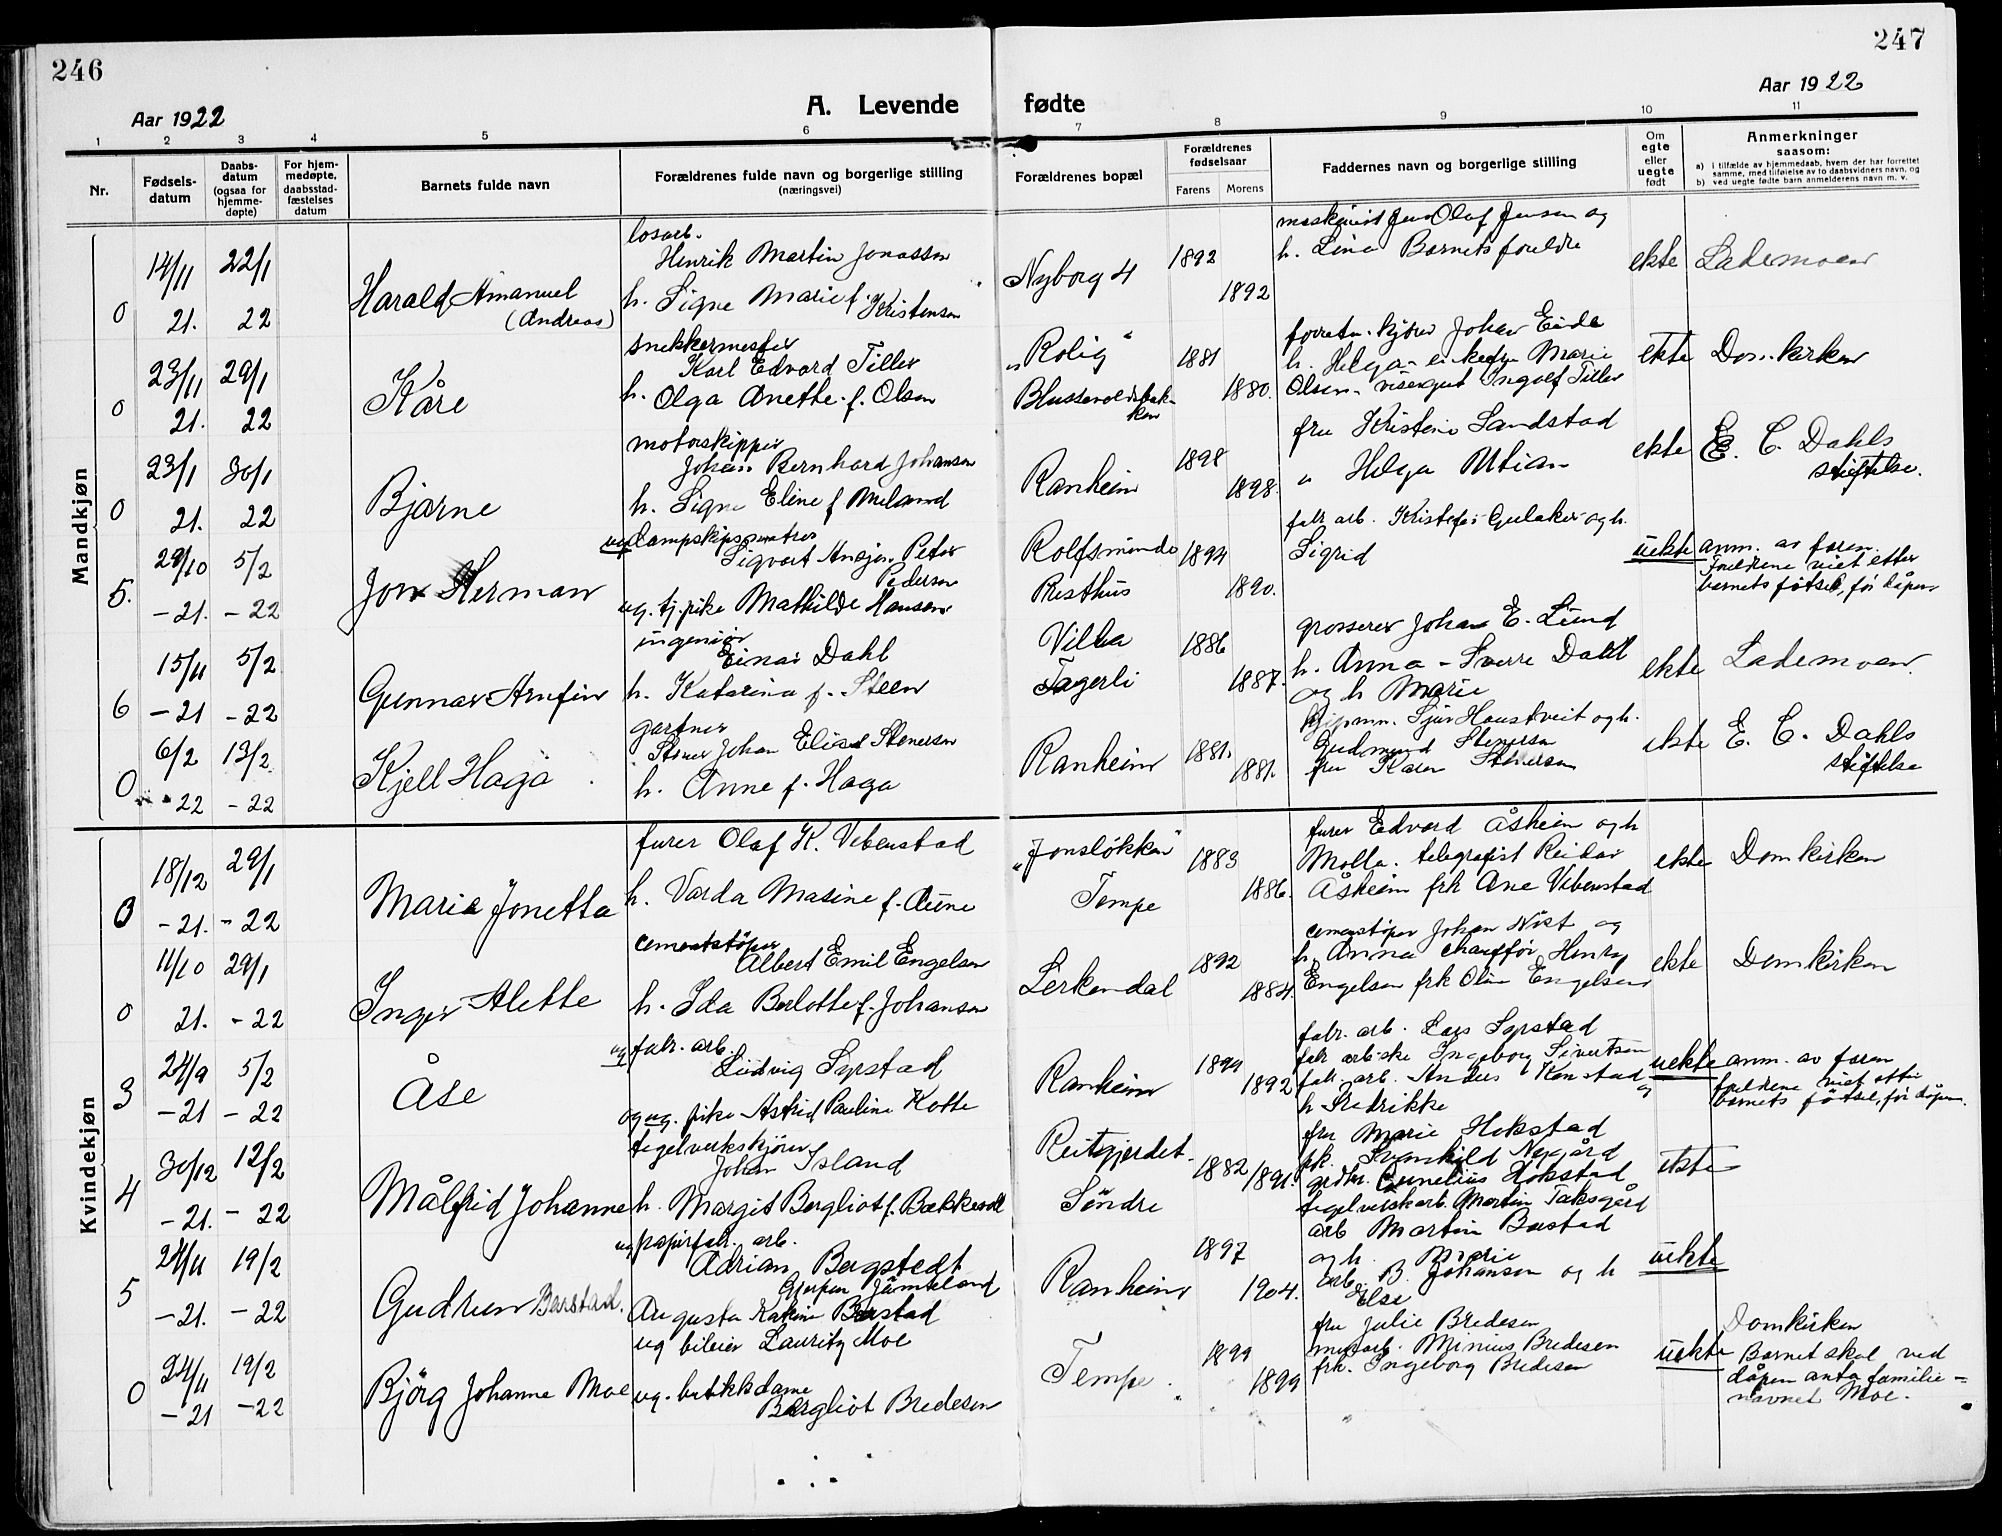 246
247
Aar 1922
A. Levende fødte
Aar 1922
1 2 3 4 5 6 7 8 9 10 11
Nr.
Fødsels-
datum
Daabs-
datum
(ogsaa for
hjemme-
døpte)
For hjem-
medøpte,
daabsstad-
fæstelses
datum
Barnets fulde navn
Forældrenes fulde navn og borgerlige stilling
(næringsvei)
Forældrenes bopæl
Forældrenes
fødselsaar
Farens Morens
Faddernes navn og borgerlige stilling
Om
egte
eller
uegte
født
Anmerkninger
saasom:
a) i tilfælde av hjemmedaab, hvem der har forrettet
samme, med tilføielse av to daabsvidners navn, og
b) ved uegte fødte barn anmelderens navn m. v.
Mandkjøn
0
14/11 22/1
21. 22
Harald Amanuel
(Andreas)
losarb.
Henrik Martin Jonassen
h. Signe Marie f. Kristensen
Nyborg 4
1892
1892
maskinist Jens Olaf Jensen og
h. Lina Barnets foreldre
ekte
Lademoen
0
23/11 29/1
21. 22
Kåre
snekkermester
Karl Edvard Tiller
h. Olga Anette f. Olsen
"Rolig"
Blussevoldsbak-
ken
1881
1880.
forretn. kjører Johan Eide
h. Helga - enkefru Marie
Olsen - visergut Ingolf Tiller
ekte
Domkirken
0
23/1 30/1
21. 22
Bjarne
motorskipper
Johan Bernhard Johansen
h. Signe Eline f Meland
Ranheim
1898
1898.
fru Kristine Sandstad
" Helga Utian
ekte
E. C. Dahls
stiftelse.
5.
29/10 5/2
-21. -22
Jon Herman
Sigvart Ansjen Peter
Pedersen
ug. tj. pike Mathilde Hansen
Rolfsminde
Presthus
1894
1890.
fabr. arb. Kristofer Gulaker og h.
Sigrid
uekte
anm. av faren.
Foreldrene viet etter
barnets fødsel, før dåpen
6
15/11 5/2
-21 -22
Gunnar Arnfin
ingeniør
Einar Dahl
h. Katarina f. Steen
Villa
Fagerli
1886
1887.
grosserer Johan E. Lund
h. Anna - Sverre Dahl
og h Marie
ekte
Lademoen.
0
6/2 13/2
22 -22
Kjell Haga
gartner
Stener Johan Elias Stenersen
h. Anne f. Haga
Ranheim
1881.
1881.
Sjur Haustveit og h.
Gudmund Stenersen
fru Karen Stenersen
ekte
E. C. Dahls
stiftelse
Kvindekjøn
0
18/12 29/1
-21. -22
Marie Jonetta
furer Olaf K. Vebenstad
h. Varda Masine f. Aune
"Jonsløkken"
Tempe
1883
1886.
furer Edvard Åsheim og h
Molla. telegrafist Reidar
Åsheim frk Ane Vebenstad
ekte
Domkirken
0
11/10 29/1
21. -22
Inger Alette
cementstøper
Albert Emil Engelsen
h. Ida Berlotte f. Johansen
Lerkendal
1892
1884.
cementstøper Johan Nøst og
h. Anna chauffør Henry
Engelsen frk Oline Engelsen
ekte
Domkirken
3
24/9 5/2
-21 -22
Åse
ug fabr. arb.
Ludvig Syrstad
og ug. pike Astrid Pauline Kotte
Ranheim
1899
1892
fabr. arb. Lars Syrstad
fabr arb.ske Ingeborg Sivertsen
fabr. arb. Anders Konstad og
h Fredrikke
uekte
anm. av faren
foreldrene viet etter
barnets fødsel, før dåpen.
4
30/12 12/2
-21. -22
Målfrid Johanne
tegelverkskjører
Johan Island
h. Margit Bergliot f. Bækkevold
Reitgjerdet
Søndre
1882
1891.
fru Marie Hokstad
frk. Svanhild Nygård
grdbr. Cornelius Hokstad
tegelverskarb. Martin Taksgård
ekte
5
24/11 19/2
-21. -22
Gudrun Barstad.
ug papirfabr. arb.
Adrian Bergstedt
Jämtland
Augusta Katrine Barstad
Ranheim
1897
1904.
arb Martin Barstad
og h. Marie
arb. B. Johansen og h
Else
uekte
0
24/11 19/2
-21 -22
Bjørg Johanne Moe
ug bileier Lauritz Moe
ug. butikkdame
Bergliot Bredesen
Tempe.
1899
1899
fru Julie Bredesen
murarb. Minius Bredesen
frk. Ingeborg Bredesen
uekte
Domkirken
Barnet skal ved
dåpen anta familie-
navnet Moe.